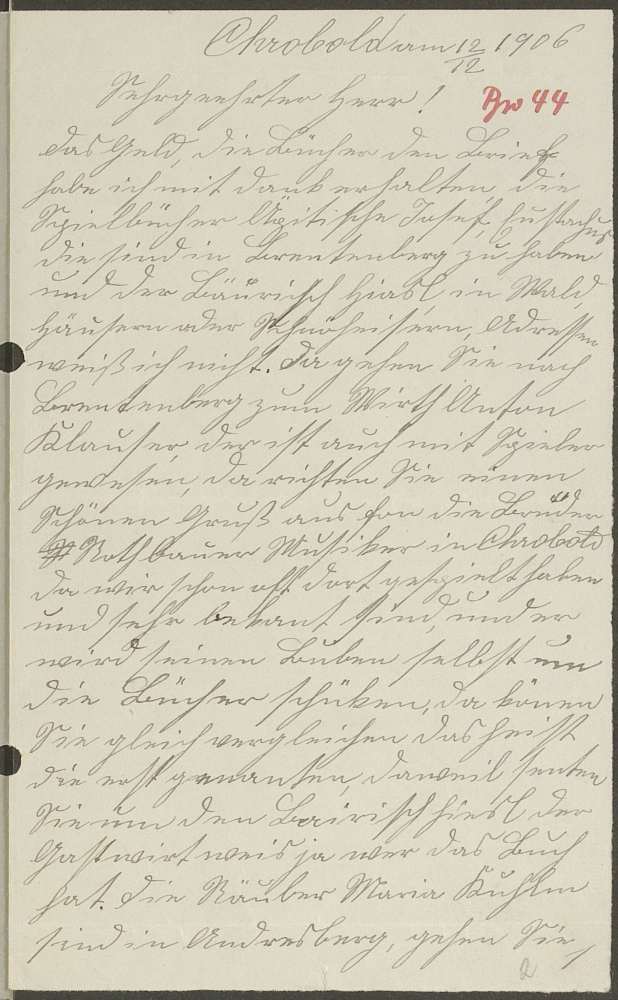 Chrobold am 12/12 1906
Sehrgeehrter Herr!
44
Das Geld, die Bücher den Brief
habe ich mit dank erhalten, die
Spielbücher Josef, Eustachus
die sind in Brentenberg zu haben
und der Bäurisch Hiasl in Wald
häusern oder Adressen
weiß ich nicht. Da gehen Sie nach
Brentenberg zum Wirth Anton
Klauser, der ist auch mit Spieler
gewesen, da richten Sie einen
Schönen Gruß aus fon die Brüder
Rothbauer Musiker in Chrobold
da wir schon oft dort gespielt haben
und sehr bekant sind, und er
wird seinen Buben selbst um
die Bücher schüken, da könen
Sie gleich vergleichen das heist
die erst genanten, daweil senten
Sie um den Bairisch hiesl der
Gastwirt weis ja wer das Buch
hat. Die Räuber Maria Kuhlm
sind in Andresberg, gehen Sie
2